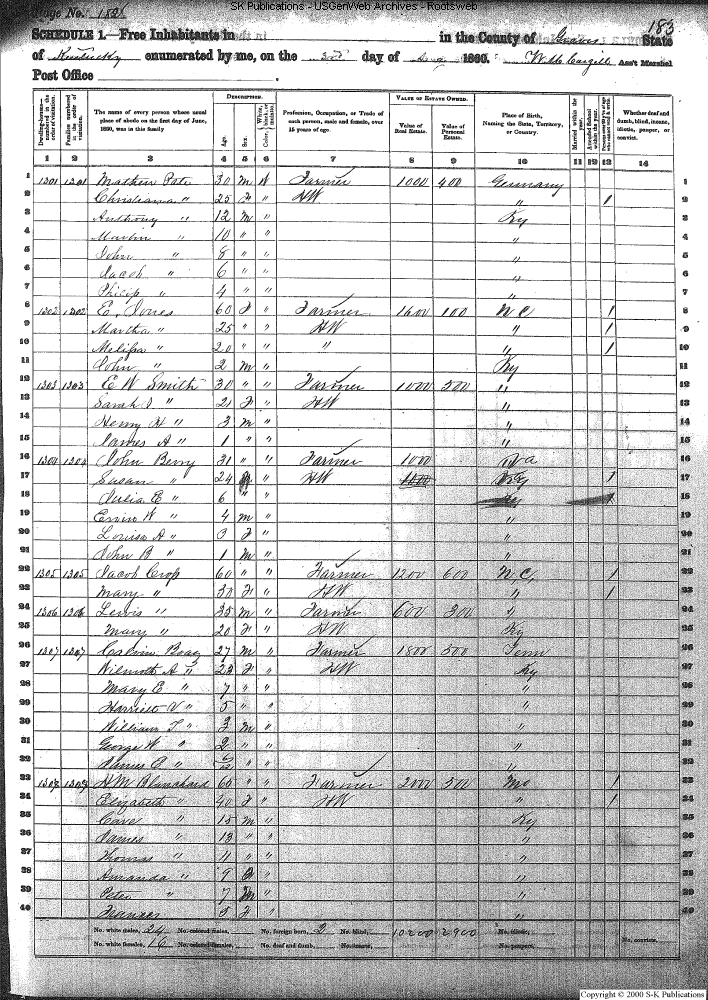 SK Publications - USGenWeb Archives - Rootsweb
Page No. 182
183
SCHEDULE 1.—Free Inhabitants in in the County of Graves State
of Kentucky enumerated by me, on the 3rd day of Aug 1860. Ass't Marshal
Post Office
Dwelling-houses—numbered in the order of visitation.
Families numbered in the order of visitation.
The name of every person whose usual place of abode on the first day of June, 1860, was in this family
DESCRIPTION.
Age.
Sex.
Profession, Occupation, or Trade of each person, male and female, over 15 years of age.
VALUE OF ESTATE OWNED.
Value of Real Estate.
Value of Personal Estate.
Place of Birth, Naming the State, Territory, or Country.
Married within the year.
Attended School within the year.
Whether deaf and dumb, blind, insane, idiotic, pauper, or convict.
1 2 3 4 5 6 7 8 9 10 11 12 13 14
1 1301 1301 Mathew Pate 30 M W Farmer 1000 400 Germany 1
2 " 25 F " HW " / 2
3 Anthony " 12 M " Ky 3
4 Martin " 10 " " " 4
5 John " 8 " " " 5
6 Jacob " 6 " " " 6
7 Philip " 4 " " " 7
8 1302 1302 E. Jones 60 F " Farmer 1600 100 N C / 8
9 Martha " 25 " " HW " / 9
10 Melissa " 20 " " " " / 10
11 John " 2 M " Ky 11
12 1303 1303 E W Smith 30 " " Farmer 1000 500 " 12
13 Sarah J " 21 F " HW " 13
14 Henry H " 3 M " " 14
15 James A " 1 " " " 15
16 1304 1304 John Berry 31 " " Farmer 1000 Va 16
17 Susan " 24 " HW 1000 Ky / 17
18 Julia E " 6 " " 18
19 Ervin W " 4 M " " 19
20 Louisa A " 3 F " " 20
21 John B " 1 M " " 21
22 1305 1305 Jacob Crop 60 " " Farmer 1200 600 N C, / 22
23 Mary " F " HW " / 23
24 1306 1306 Lewis " 35 M " Farmer 600 300 " 24
25 Mary " 20 F " HW Ky 25
26 1307 1307 Calvin Boaz 27 M " Farmer 1800 500 Tenn 26
27 Wilmoth A " 23 F " HW Ky 27
28 Mary E " 7 " " " 28
29 Harriett V " 5 " " " 29
30 William T " 3 M " " 30
31 George W " 2 " " " 31
32 James " " " " 32
33 H M Blanchard 60 " " Farmer 2000 500 / 33
34 Elizabeth " 40 F " HW / 34
35 Cave " 15 M " Ky 35
36 James " 13 " " " 36
37 Thomas " 11 " " " 37
38 Amanda " 9 " " 38
39 Peter " 7 M " " 39
40 Frances 5 F " " 40
No. white males, 24 No. colored males, No. foreign born, 2 No. blind, 10200 2900 No. idiotic,
No. white females, 16 No. colored females, No. deaf and dumb, No. insane, No. paupers, No. convicts,
Copyright © 2000 S-K Publications